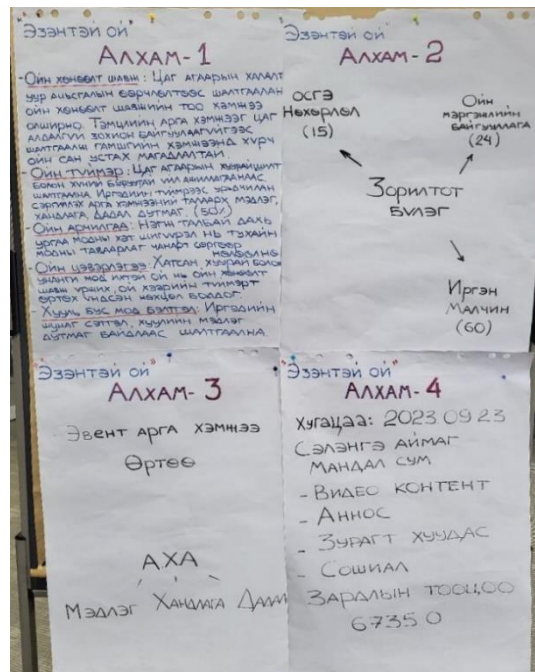 Эзэнтэй ой
Алхам-1
- Ойн хөнөөлт шавж: Цаг агаарын халалт
уур амьсгалын өөрчлөлтөөс шалтгаалан
ойн хөнөөлт шавжийн тоо хэмжээ
олширно. Тэмцлийн арга хэмжээг цаг
алдалгүй зохион байгуулаагүйгээс
шалтгаалж гамшгийн хэмжээнд хүрч
ойн сан устах магадлалтай.
- Ойн түймэр: Цаг агаарын хуурайшилт
болон хүний буруутай үйл ажиллагаанаас
шалтгаална. Иргэдийн түймрээс урьдчилан
сэргийлэх арга хэмжээний талаарх мэдлэг,
хандлага, дадал дутмаг. (50%)
- Ойн арчилгаа: Нэгж талбай дахь
ургаа модны хэт шигүүрэл нь тухайн
модны таваарлаг чанарт сөргөөр
нөлөөлнө
- Ойн цэвэрлэгээ: Хатсан, хуурай болон
унанги мод ихтэй ой нь ойн хөнөөлт
шавж үржих, ой хээрийн түймэрт
өртөх үндсэн нөхцөл болдог.
- Хууль бус мод бэлтгэл: Иргэдийн
шунаг сэтгэл, хуулийн мэдлэг
дутмаг байдлаас шалтгаална.
Эзэнтэй ой
Алхам-2
ОСГЭ
Нөхөрлөл
(15)
Ойн
мэргэжлийн
байгууллага
(24)
Зорилтот
бүлэг
Иргэн
Малчин
(60)
Эзэнтэй ой
Алхам-3
Эвент арга хэмжээ
Өртөө
АХА
Мэдлэг Хандлага Дадал
Эзэнтэй ой
Алхам-4
Хугацаа: 2023.09.23
Сэлэнгэ аймаг
Мандал сум
- Видео контент
- Аннос
- Зурагт хуудас
- Сошиал
Зардлын тооцоо
6735.0